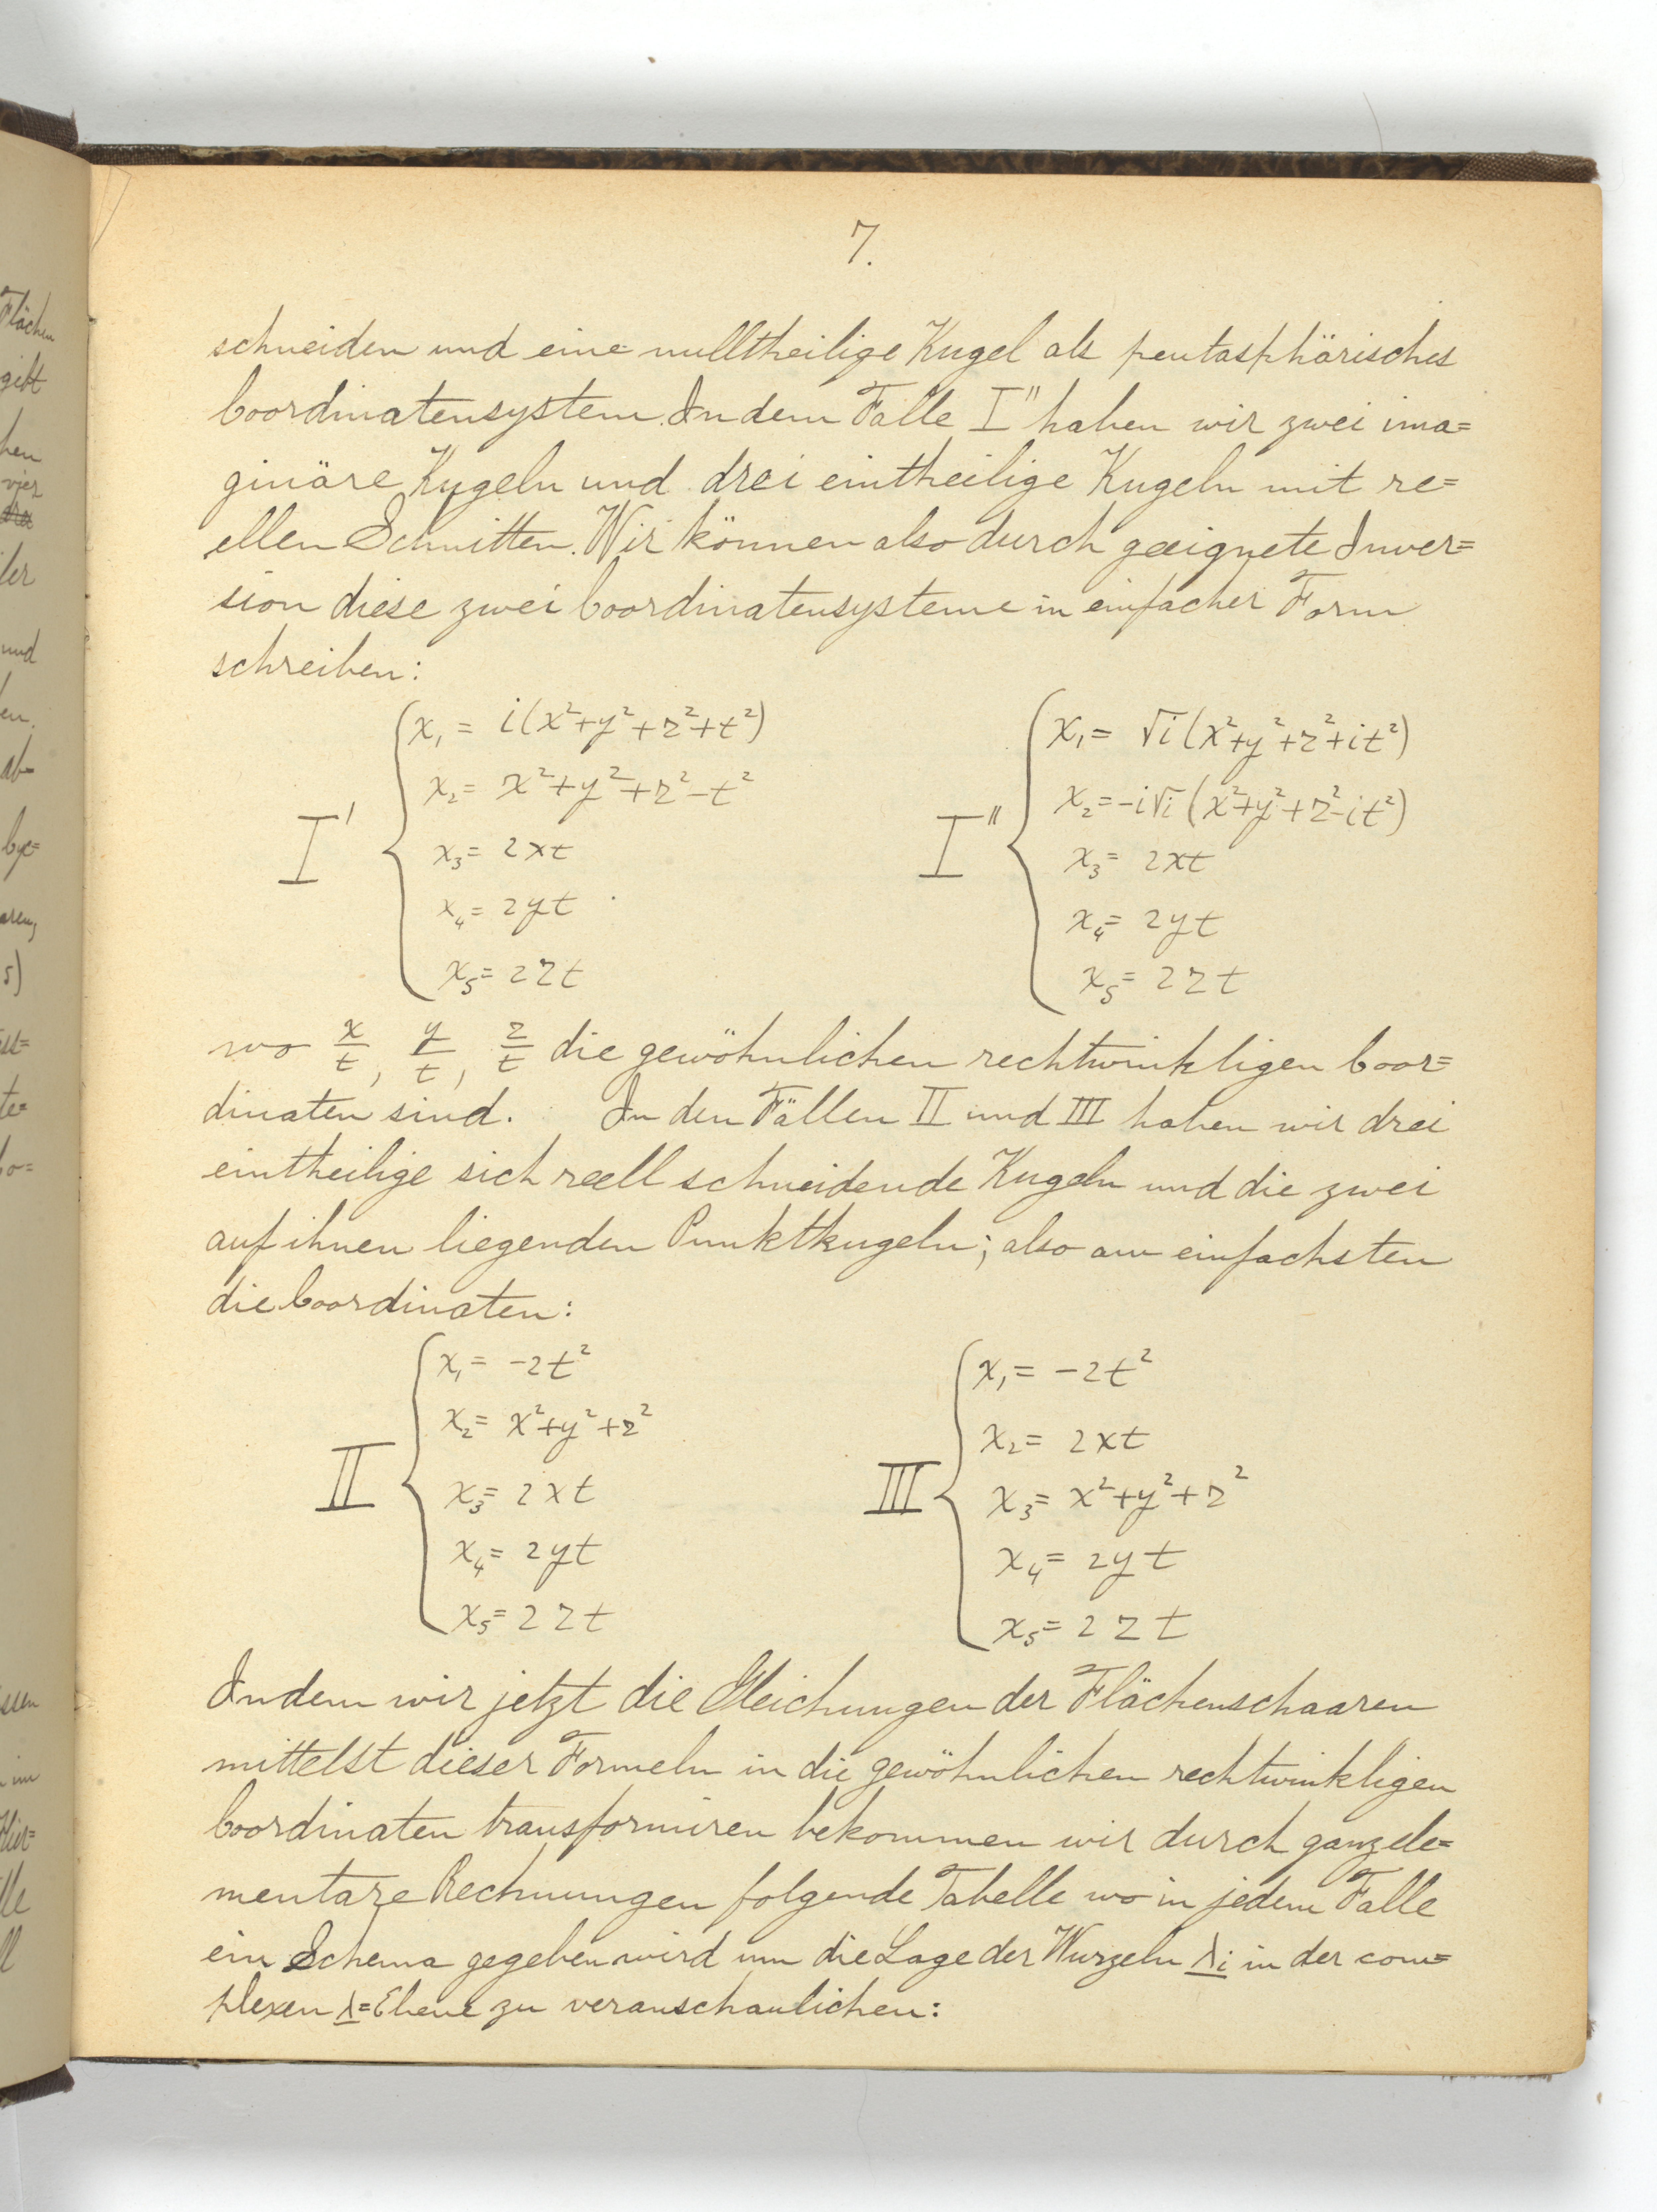 7.
schneiden und eine nulltheilige Kugel als pentasphärisches
Coordinatensystem. In dem Falle I" haben wir zwei ima=
ginäre Kugeln und drei eintheilige Kugeln mit re=
ellen Schnitten. Wir können also durch geeignete Inver=
sion diese zwei Coordinatensysteme in einfacher Form
schreiben:
I' { x₁ = i(x²+y²+z²+t²)
x₂ = x²+y²+z²-t²
x₃ = 2xt
x₄ = 2yt
x₅ = 2zt
I" { x₁ = √i(x²+y²+z²+it²)
x₂ = -i√i(x²+y²+z²-it²)
x₃ = 2xt
x₄ = 2yt
x₅ = 2zt
wo x/t, y/t, z/t die gewöhnlichen rechtwinkligen Coor=
dinaten sind. In den Fällen II und III haben wir drei
eintheilige sich reell schneidende Kugeln und die zwei
auf ihnen liegenden Punktkugeln; also am einfachsten
die Coordinaten:
II { x₁ = -2t²
x₂ = x²+y²+z²
x₃ = 2xt
x₄ = 2yt
x₅ = 2zt
III { x₁ = -2t²
x₂ = 2xt
x₃ = x²+y²+z²
x₄ = 2yt
x₅ = 2zt
Indem wir jetzt die Gleichungen der Flächenschaaren
mittelst dieser Formeln in die gewöhnlichen rechtwinkligen
Coordinaten transformiren bekommen wir durch ganz ele=
mentare Rechnungen folgende Tabelle wo in jedem Falle
ein Schema gegeben wird um die Lage der Wurzeln λi in der com=
plexen λ=Ebene zu veranschaulichen: